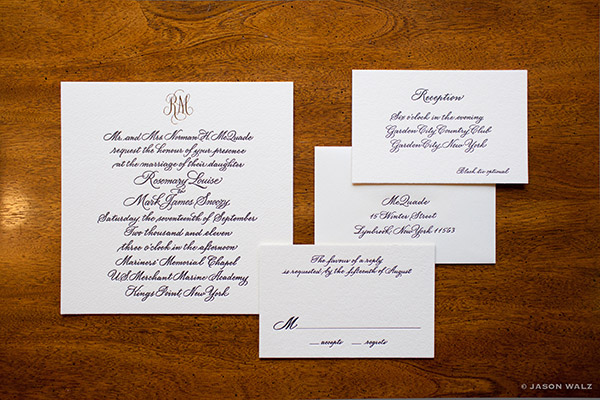 RM
Mr. and Mrs. Norman H. McQuade
request the honour of your presence
at the marriage of their daughter
Rosemary Louise
to
Mark James Snoozy
Saturday the seventeenth of September
Two thousand and eleven
three o'clock in the afternoon
Mariners' Memorial Chapel
U.S. Merchant Marine Academy
Kings Point, New York
Reception
Six o'clock in the evening
Garden City Country Club
Garden City, New York
Black tie optional
McQuade
15 Winter Street
Lynbrook, New York 11563
The favour of a reply
is requested by the fifteenth of August
M
accepts regrets
© JASON WALZ